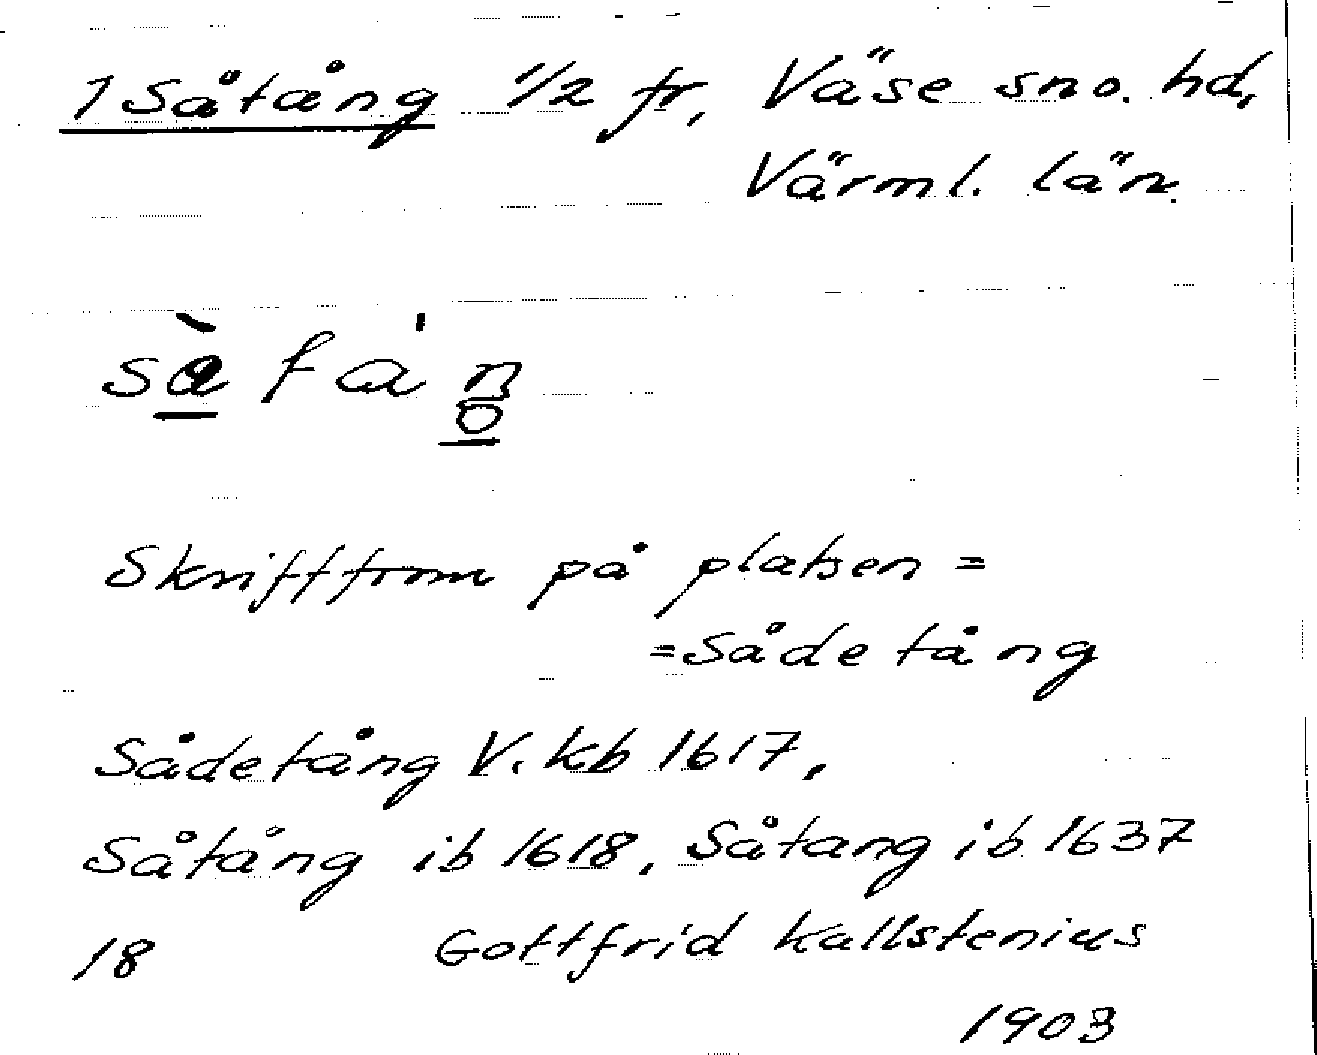 1 Såtång 1/2 fr, Väse sno. hd,
Värml. län.
sàtáŋ
Skriftfrom på platsen =
=Sådetång
Sådetång V. kb 1617,
Såtång ib 1618, Såtang ib 1637
18 Gottfrid Kallstenius
1903